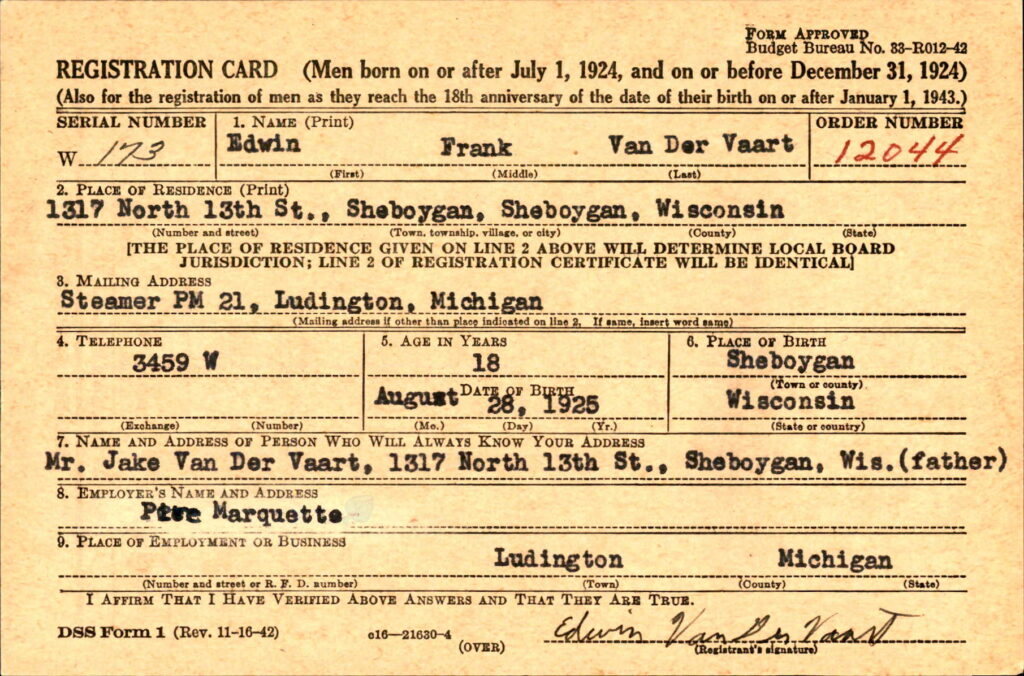 FORM APPROVED
Budget Bureau No. 33-R012-42
REGISTRATION CARD (Men born on or after July 1, 1924, and on or before December 31, 1924)
(Also for the registration of men as they reach the 18th anniversary of the date of their birth on or after January 1, 1943.)
SERIAL NUMBER
W 173
1. NAME (Print)
Edwin Frank Van Der Vaart
(First) (Middle) (Last)
ORDER NUMBER
12044
2. PLACE OF RESIDENCE (Print)
1317 North 13th St., Sheboygan, Sheboygan, Wisconsin
(Number and street) (Town, township, village, or city) (County) (State)
[THE PLACE OF RESIDENCE GIVEN ON LINE 2 ABOVE WILL DETERMINE LOCAL BOARD
JURISDICTION; LINE 2 OF REGISTRATION CERTIFICATE WILL BE IDENTICAL]
3. MAILING ADDRESS
Steamer PM 21, Ludington, Michigan
(Mailing address if other than place indicated on line 2. If same, insert word same)
4. TELEPHONE
3459 W
(Exchange) (Number)
5. AGE IN YEARS
18
DATE OF BIRTH
August 28, 1925
(Mo.) (Day) (Yr.)
6. PLACE OF BIRTH
Sheboygan
(Town or county)
Wisconsin
(State or country)
7. NAME AND ADDRESS OF PERSON WHO WILL ALWAYS KNOW YOUR ADDRESS
Mr. Jake Van Der Vaart, 1317 North 13th St., Sheboygan, Wis.(father)
8. EMPLOYER'S NAME AND ADDRESS
Marquette
9. PLACE OF EMPLOYMENT OR BUSINESS
Ludington Michigan
(Number and street or R. F. D. number) (Town) (County) (State)
I AFFIRM THAT I HAVE VERIFIED ABOVE ANSWERS AND THAT THEY ARE TRUE.
DSS Form 1 (Rev. 11-16-42) c16—21630-4 (OVER)
Edwin Van Der Vaart
(Registrant's signature)